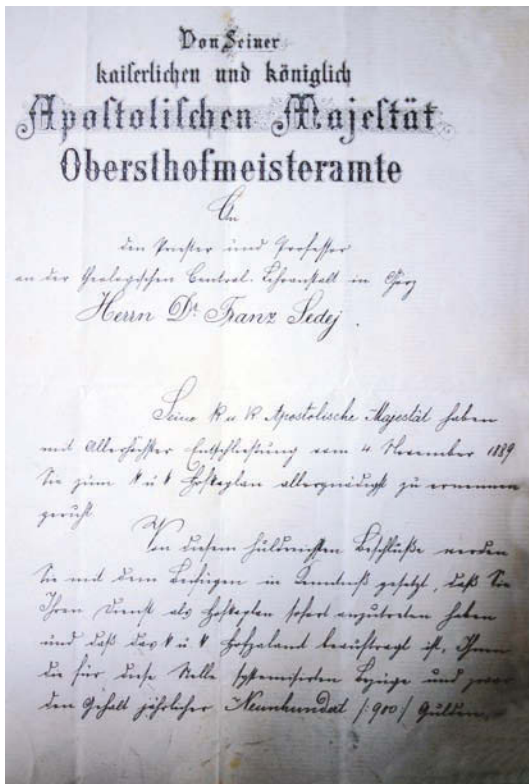 Von Seiner
kaiserlichen und königlich
Apostolischen Majestät
Obersthofmeisteramte
An
den Priester und Professor
an der theologischen Central-Lehranstalt in Görz
Herrn Dr. Franz Sedej.
Seine k u k Apostolische Majestät haben
mit Allerhöchster Entschließung vom 4 November 1889
Sie zum k u k Hofkaplan allergnädigst zu ernennen
geruht.
Von diesem huldreichsten Beschluße werden
Sie mit dem Beifügen in Kenntniß gesetzt, daß Sie
Ihren Dienst als Hofkaplan sofort anzutreten haben
und daß das k u k Hofzalamt beauftragt ist, Ihnen
die für diese Stelle systemisirten Bezüge und zwar
den Gehalt jährlicher Neunhundert /:900/ Gulden,